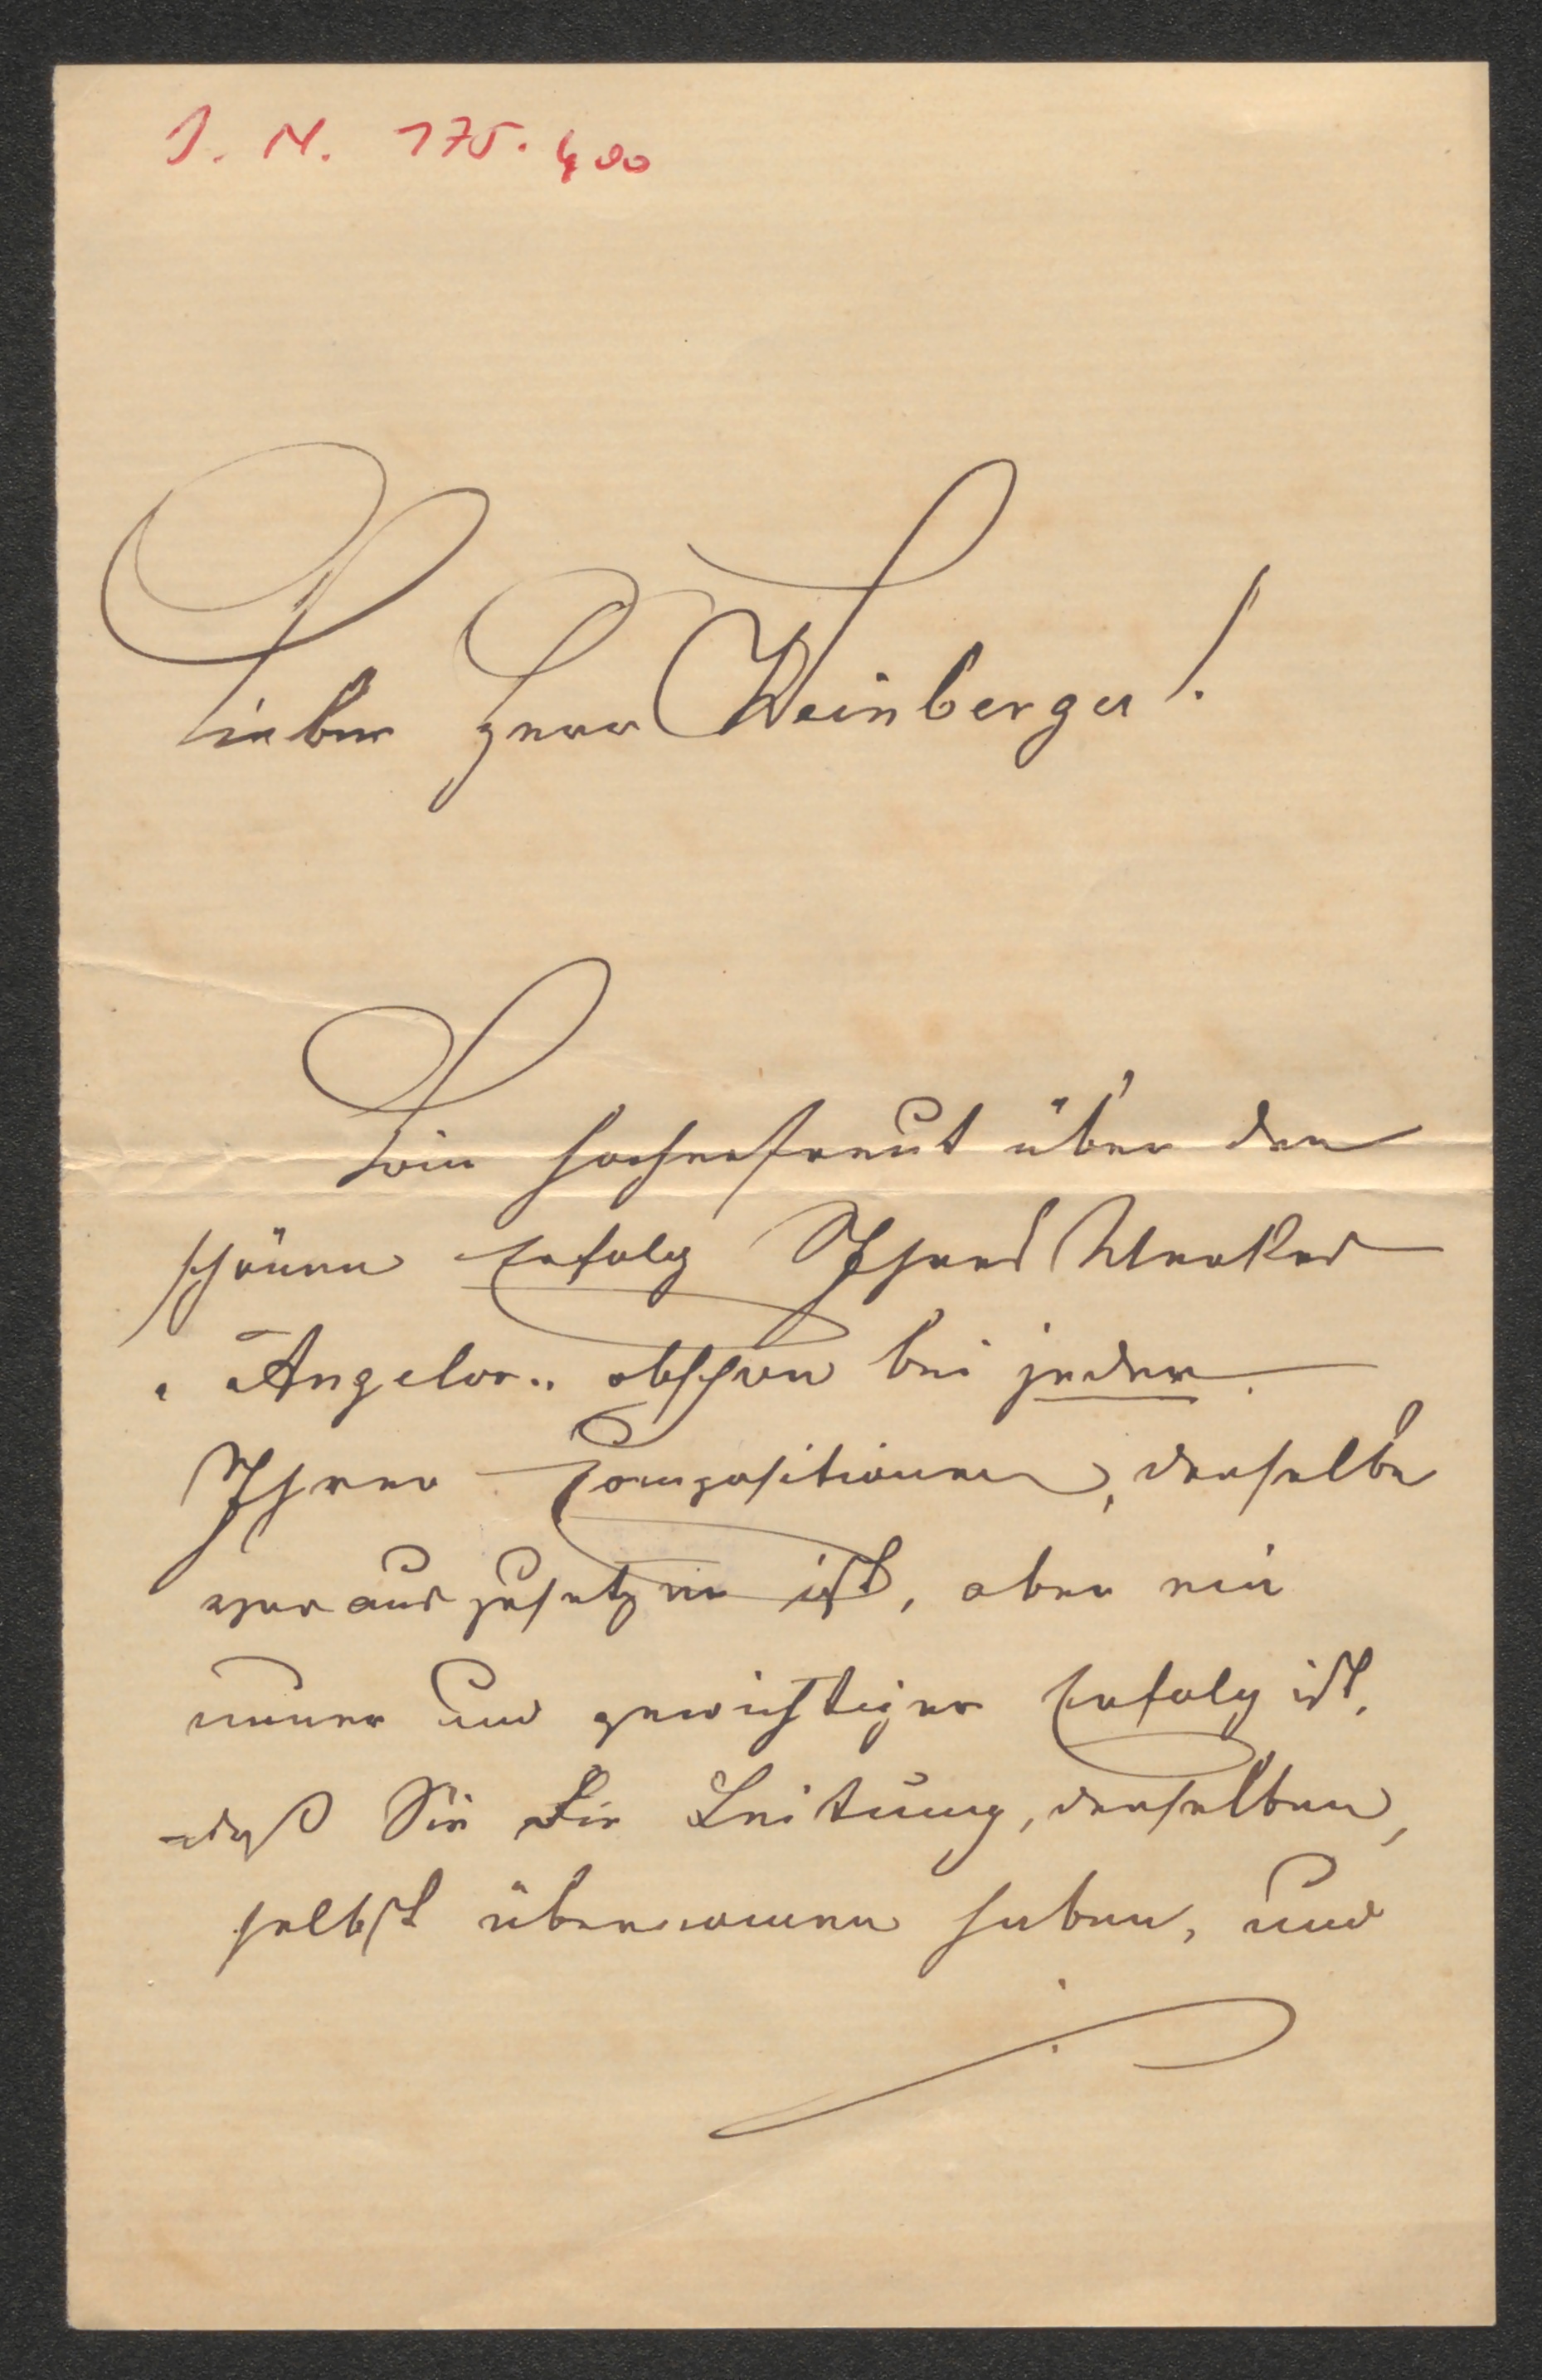 J. N. 175.400
Lieber Herr Weinberger!
Bin hocherfreut über den
schönen Erfolg Ihres Werkes
"Angelor" obschon bei jeder
Ihrer Compositionen, derselbe
vorauszusetzen ist, aber ein
neuer und gewichtiger Erfolg ist,
daß Sie die Leitung, derselben,
selbst übernomen haben, und